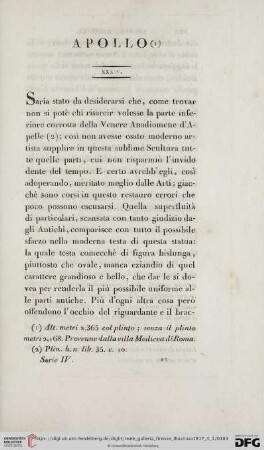 APOLLO(1)
Saria stato da desiderarsi che, come trovar
non si potè chi risarcir volesse la parte infe-
riore corrosa della Venere Anadiomene d'A-
pelle (2); così non avesse osato moderno ar-
tista supplire in questa sublime Scultura tut-
te quelle parti, cui non risparmiò l'invido
dente del tempo. E certo avrebb'egli, così
adoperando, meritato meglio dalle Arti; giac-
chè sono corsi in questo restauro errori che
poco possono escusarsi. Quella superfluità
di particolari, scansata con tanto giudizio dagli
Antichi, comparisce con tutto il possibile
sforzo nella moderna testa di questa statua:
la quale testa comecchè di figura bislunga,
piuttosto che ovale, manca eziandio di quel
carattere grandioso e bello, che dar le si do-
vea per renderla il più possibile uniforme al-
le parti antiche. Più d'ogni altra cosa però
offendono l'occhio del riguardante e il brac-
(1) Alt. metri 2,365 col plinto; senza il plinto
metri 2,168. Provenne dalla villa Medicea di Roma.
(2) Plin. h. n. lib. 35. c. 10.
Serie IV.
UNIVERSITÄTS-
BIBLIOTHEK
HEIDELBERG
DFG